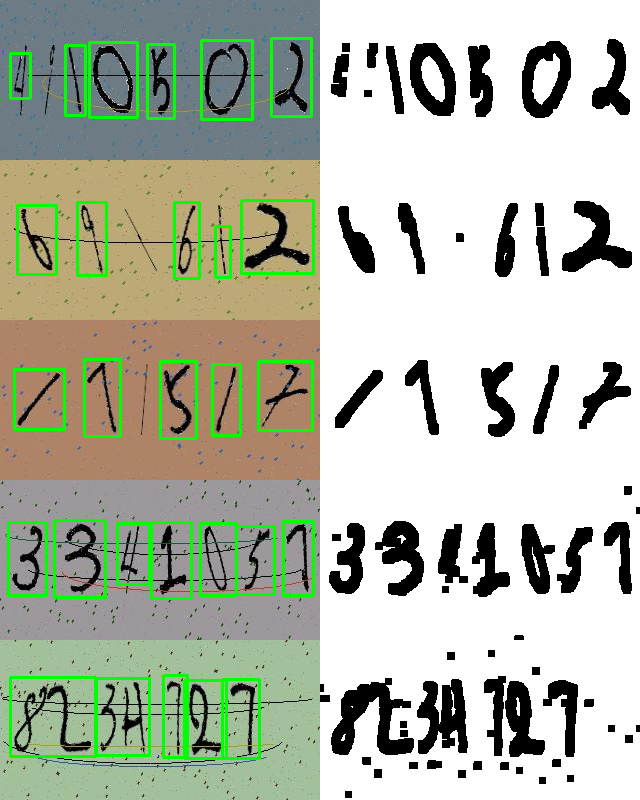 4110502 4 10502
691612 61612
111517 11517
3341057 3341057
8234727 8234727